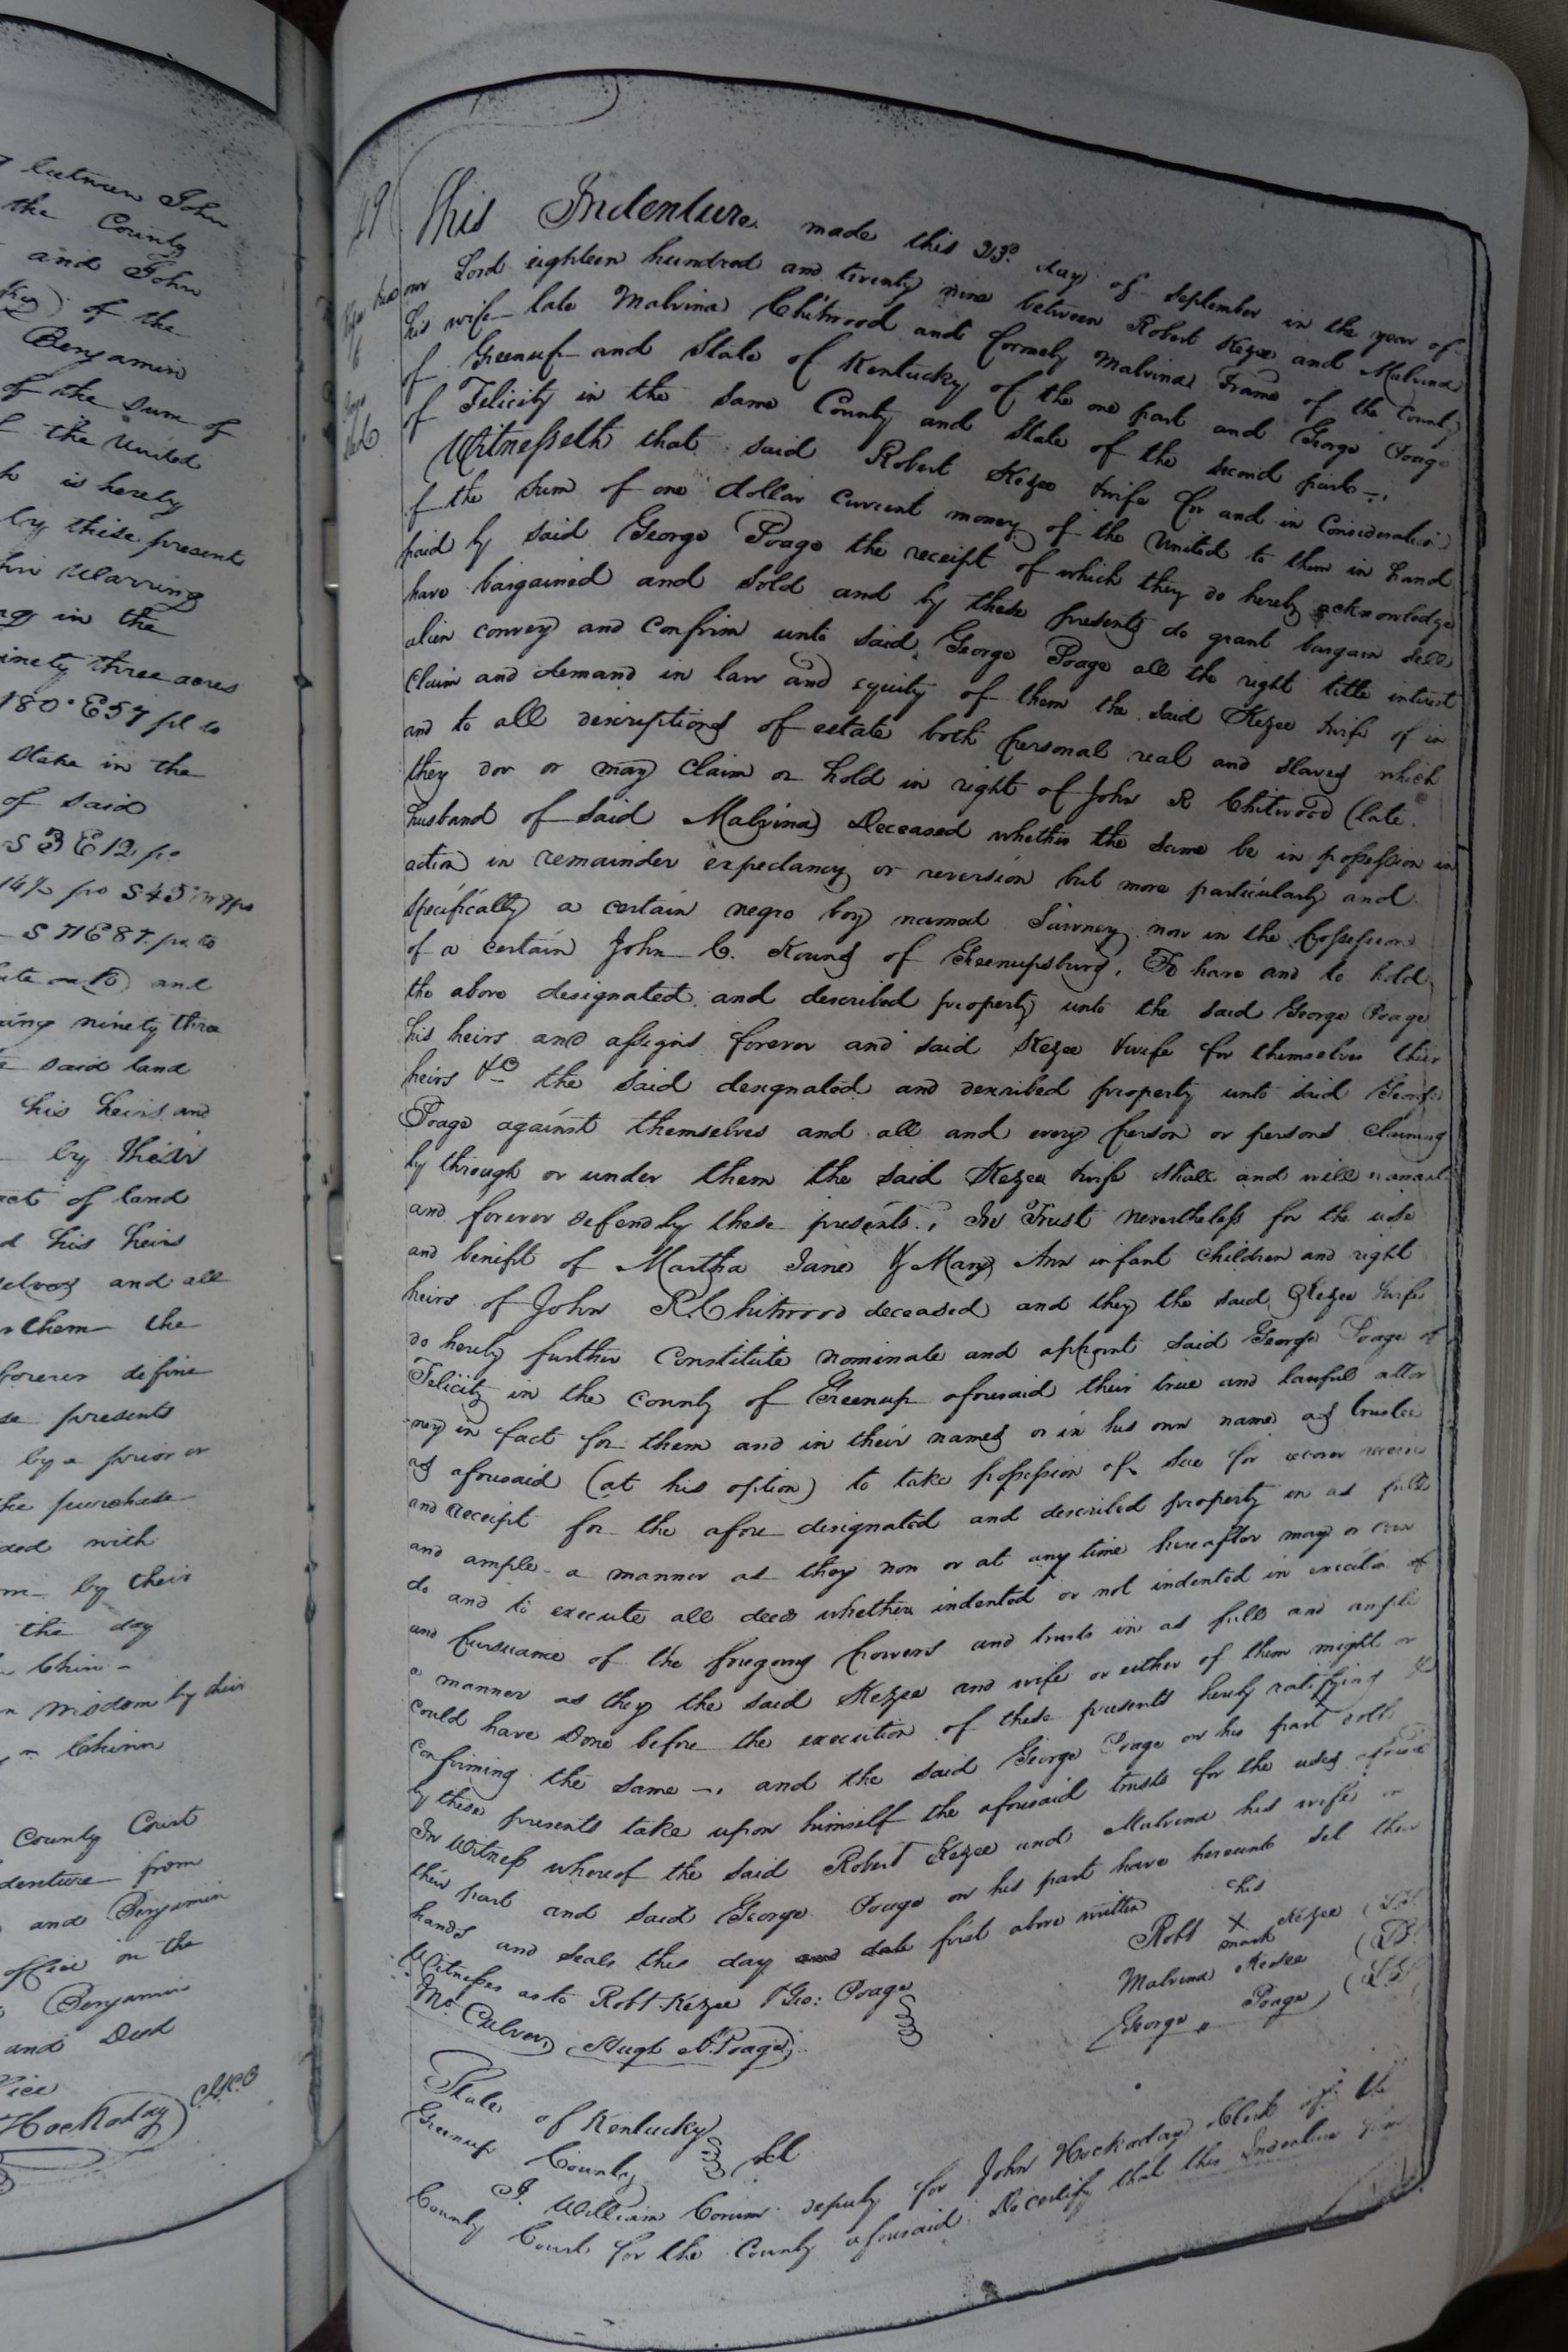 between John
the County
and John
of the
Benjamin
of the sum of
the United
is hereby
by these present
Warring
in the
ninety three acres
E 57 pl to
stake in the
of said
S 3 E 12 po
S 71 E 87 po. to
and
ninety three
said land
his heirs and
by their
of land
his heirs
and all
them the
forever define
presents
by a prior or
the purchase
with
by their
the day
Chinn
wisdom by their
Chinn
County Court
Indenture from
and Benjamin
office on the
Benjamin
and Deed
Hockaday C.G.C.C
This Indenture made this 23d day of September in the year of
our Lord eighteen hundred and twenty nine between Robert Kezee and Malvina
his wife late Malvina Chitwood and formely Malvina Frame of the County
of Greenup and State of Kentucky of the one part and George Poage
of Felicity in the same County and State of the second part
Witnesseth that said Robert Kezee & wife for and in Consideration
of the sum of one dollar current money of the United to them in hand
paid by said George Poage the receipt of which they do hereby acknowledge
have bargained and sold and by these presents do grant bargain sell
alien convey and confirm unto said George Poage all the right title interest
claim and demand in law and equity of them the said Kezee & wife of in
and to all descriptions of estate both personal real and slaves which
they dor or may claim or hold in right of John R Chitwood (late
husband of said Malvina) Deceased whether the same be in possession in
action in remainder expectancy or reversion but more particularly and
specifically a certain negro boy named now in the possession
of a certain John C. Young of Greenupsburg, To have and to hold
the above designated and described property unto the said George Poage
his heirs and assigns forever and said Kezee & wife for themselves their
heirs &c the said designated and described property unto said George
Poage against themselves and all and every person or persons claiming
by through or under them the said Kezee & wife shall and will warrant
and forever defend by these presents. In Trust nevertheless for the use
and benifit of Martha Jane & Mary Ann infant children and right
heirs of John R. Chitwood deceased and they the said Kezee & wife
do hereby further constitute nominate and appoint said George Poage of
Felicity in the county of Greenup aforesaid their true and lawful attor
ney in fact for them and in their names or in his own name as trustee
as aforesaid (at his option) to take possession of sue for recover receive
and receipt for the afore designated and described property in as full
and ample a manner as they now or at any time hereafter may or can
do and to execute all deeds whether indented or not indented in execution of
and pursuance of the foregoing powers and trusts in as full and ample
a manner as they the said Kezee and wife or either of them might or
could have done before the execution of these presents hereby ratifying &
confirming the same and the said George Poage on his part doth
by these presents take upon himself the aforesaid trusts for the uses aforesaid
In Witness whereof the said Robert Kezee and Malvina his wife on
their part and said George Poage on his part have hereunto set their
hands and seals this day and date first above written
his
Robt X Kezee (L.S.)
mark
Witnesses as to Robt Kezee & Geo: Poage
Malvina Kezee (L.S.)
Mc Culver, Hugh A. Poage
George Poage (L.S.)
State of Kentucky
Greenup County Sct
I William Corum deputy for John Hockaday Clerk of the
County Court for the County aforesaid Do certify that this Indenture from